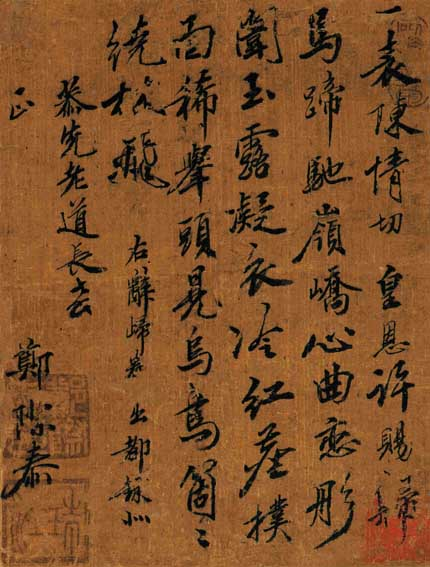 一表陳情切 皇恩許賜歸
馬蹄馳嶺嶠心曲戀彤
闈玉露凝衣冷紅塵撲
面稀舉頭見烏鳥箇〻
繞松飛
右辭歸 出都録似
恭先老道長
正
鄭際泰